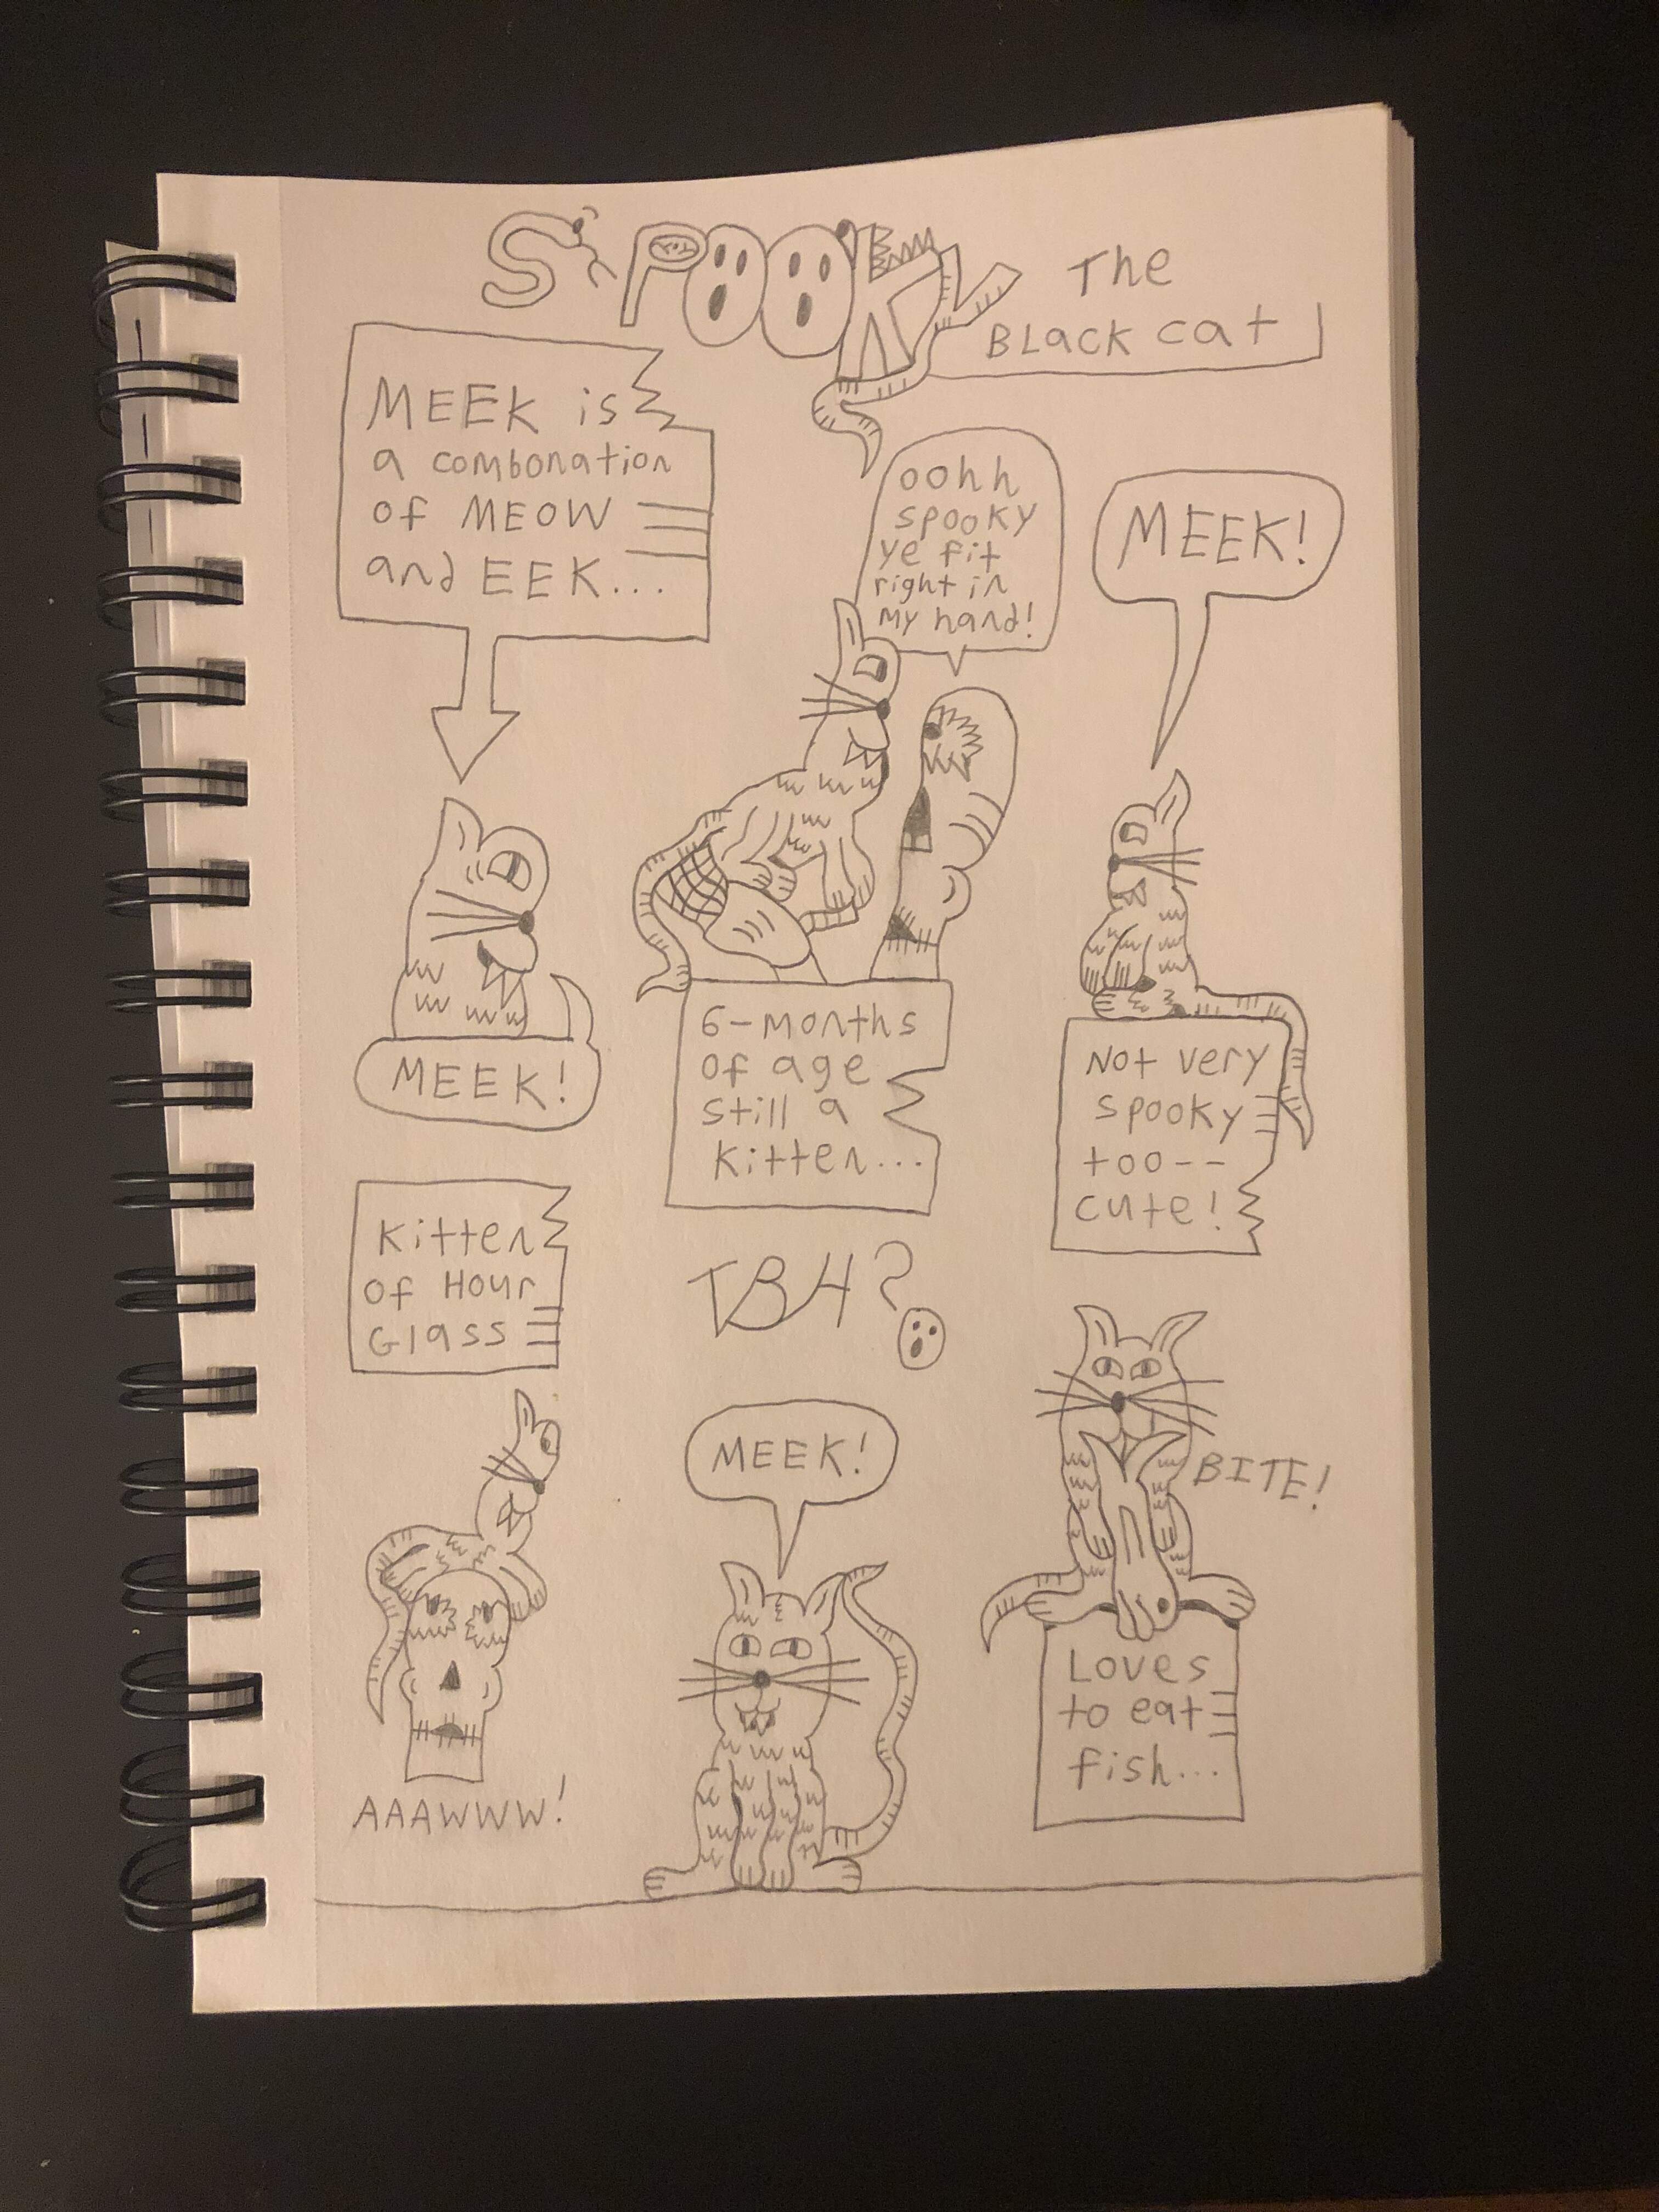 SPOOKY The
BLack cat
MEEK is
a combonation
of MEOW
and EEK...
oohh
spooky
ye fit
right in
my hand!
MEEK!
MEEK!
6-months
of age
still a
kitten...
Not very
spooky
too--
cute!
Kitten
of Hour
Glass
TBH?
AAAWWW!
MEEK!
BITE!
Loves
to eat
fish...